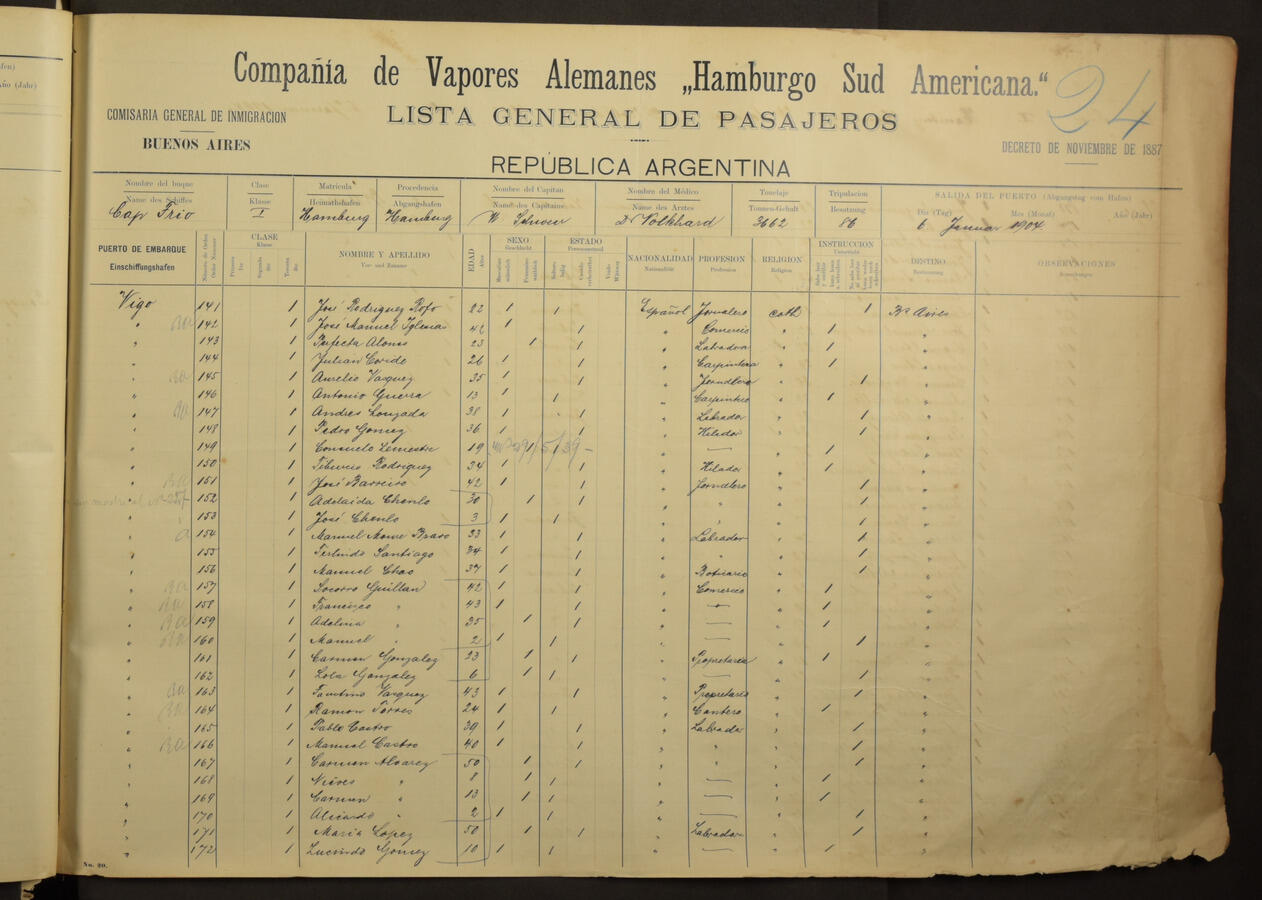 Compañía de Vapores Alemanes „Hamburgo Sud Americana.“
24
COMISARIA GENERAL DE INMIGRACION
LISTA GENERAL DE PASAJEROS
BUENOS AIRES
DECRETO DE NOVIEMBRE DE 1887
REPÚBLICA ARGENTINA
Nombre del buque Clase Matrícula Procedencia Nombre del Capitan Nombre del Médico Tonelaje Tripulacion SALIDA DEL PUERTO (Abgangstag vom Hafen)
Name des Schiffes Klasse Heimathshafen Abgangshafen Name des Capitains Name des Arztes Tonnen-Gehalt Besatzung Dia (Tag) Mes (Monat) Año (Jahr)
Cap Frio I Hamburg Hamburg W Dr Volkhard 3662 86 6 Januar 1904
PUERTO DE EMBARQUE Einschiffungshafen CLASE Klasse NOMBRE Y APELLIDO Vor- und Zuname EDAD SEXO Geschlecht ESTADO NACIONALIDAD Nationalität PROFESION Profession RELIGION Religion INSTRUCCION DESTINO Bestimmung OBSERVACIONES
Vigo 141 1 José Rodriguez Rofo 22 1 1 Español Jornalero cath 1 Bs Aires
" 142 1 José Manuel Iglesias 42 1 1 " Comercio " 1 "
" 143 1 Perfecta Alonso 23 1 1 " Labradora " 1 "
" 144 1 Julian Conde 26 1 1 " Carpintero " 1 "
" 145 1 Aurelio Vasquez 35 1 1 " Jornalero " 1 "
" 146 1 Antonio Guerra 13 1 1 " Carpintero " 1 "
" 147 1 Andres Louzada 38 1 1 " Labrador " 1 "
" 148 1 Pedro Gomez 36 1 1 " Hilador " 1 "
" 149 1 Consuelo Lemestre 19 29/5/39 " — " 1 "
" 150 1 Tiburcio Rodriguez 34 1 1 " Hilador " 1 "
" 151 1 José Barreiro 42 1 1 " Jornalero " 1 "
" 152 1 Adelaida Chenlo 30 1 1 " " " 1 "
" 153 1 José Chenlo 3 1 1 " " " 1 "
" 154 1 Manuel Bravo 33 1 1 " Labrador " 1 "
" 155 1 Santiago 34 1 1 " " " 1 "
" 156 1 Manuel Chao 37 1 1 " " 1 "
" 157 1 Socorro Guillan 42 1 1 " Comercio " 1 "
" 158 1 Francisco " 43 1 1 " — " 1 "
" 159 1 Adelina " 35 1 1 " — " 1 "
" 160 1 Manuel " 2 1 1 " — " 1 "
" 161 1 Carmen Gonzalez 23 1 1 " Propretaria " 1 "
" 162 1 Lola Gonzalez 6 1 1 " — " 1 "
" 163 1 Faustino Vasquez 43 1 1 " Propretario " 1 "
" 164 1 Ramon Torres 24 1 1 " Cantero " 1 "
" 165 1 Pablo Castro 39 1 1 " Labrada " 1 "
" 166 1 Manuel Castro 40 1 1 " " " 1 "
" 167 1 Carmen Alvarez 50 1 1 " " " 1 "
" 168 1 Nieves " 8 1 1 " — " 1 "
" 169 1 Carmen " 13 1 1 " — " 1 "
" 170 1 " 2 1 1 " — " 1 "
" 171 1 Maria Lopez 50 1 1 " Labrador " 1 "
" 172 1 Lucindo Gomez 10 1 1 " — " 1 "
No. 20.